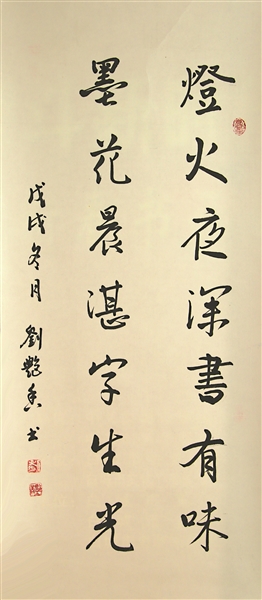 燈火夜深書有味
墨花晨湛字生光
戊戌冬月 劉艷香書